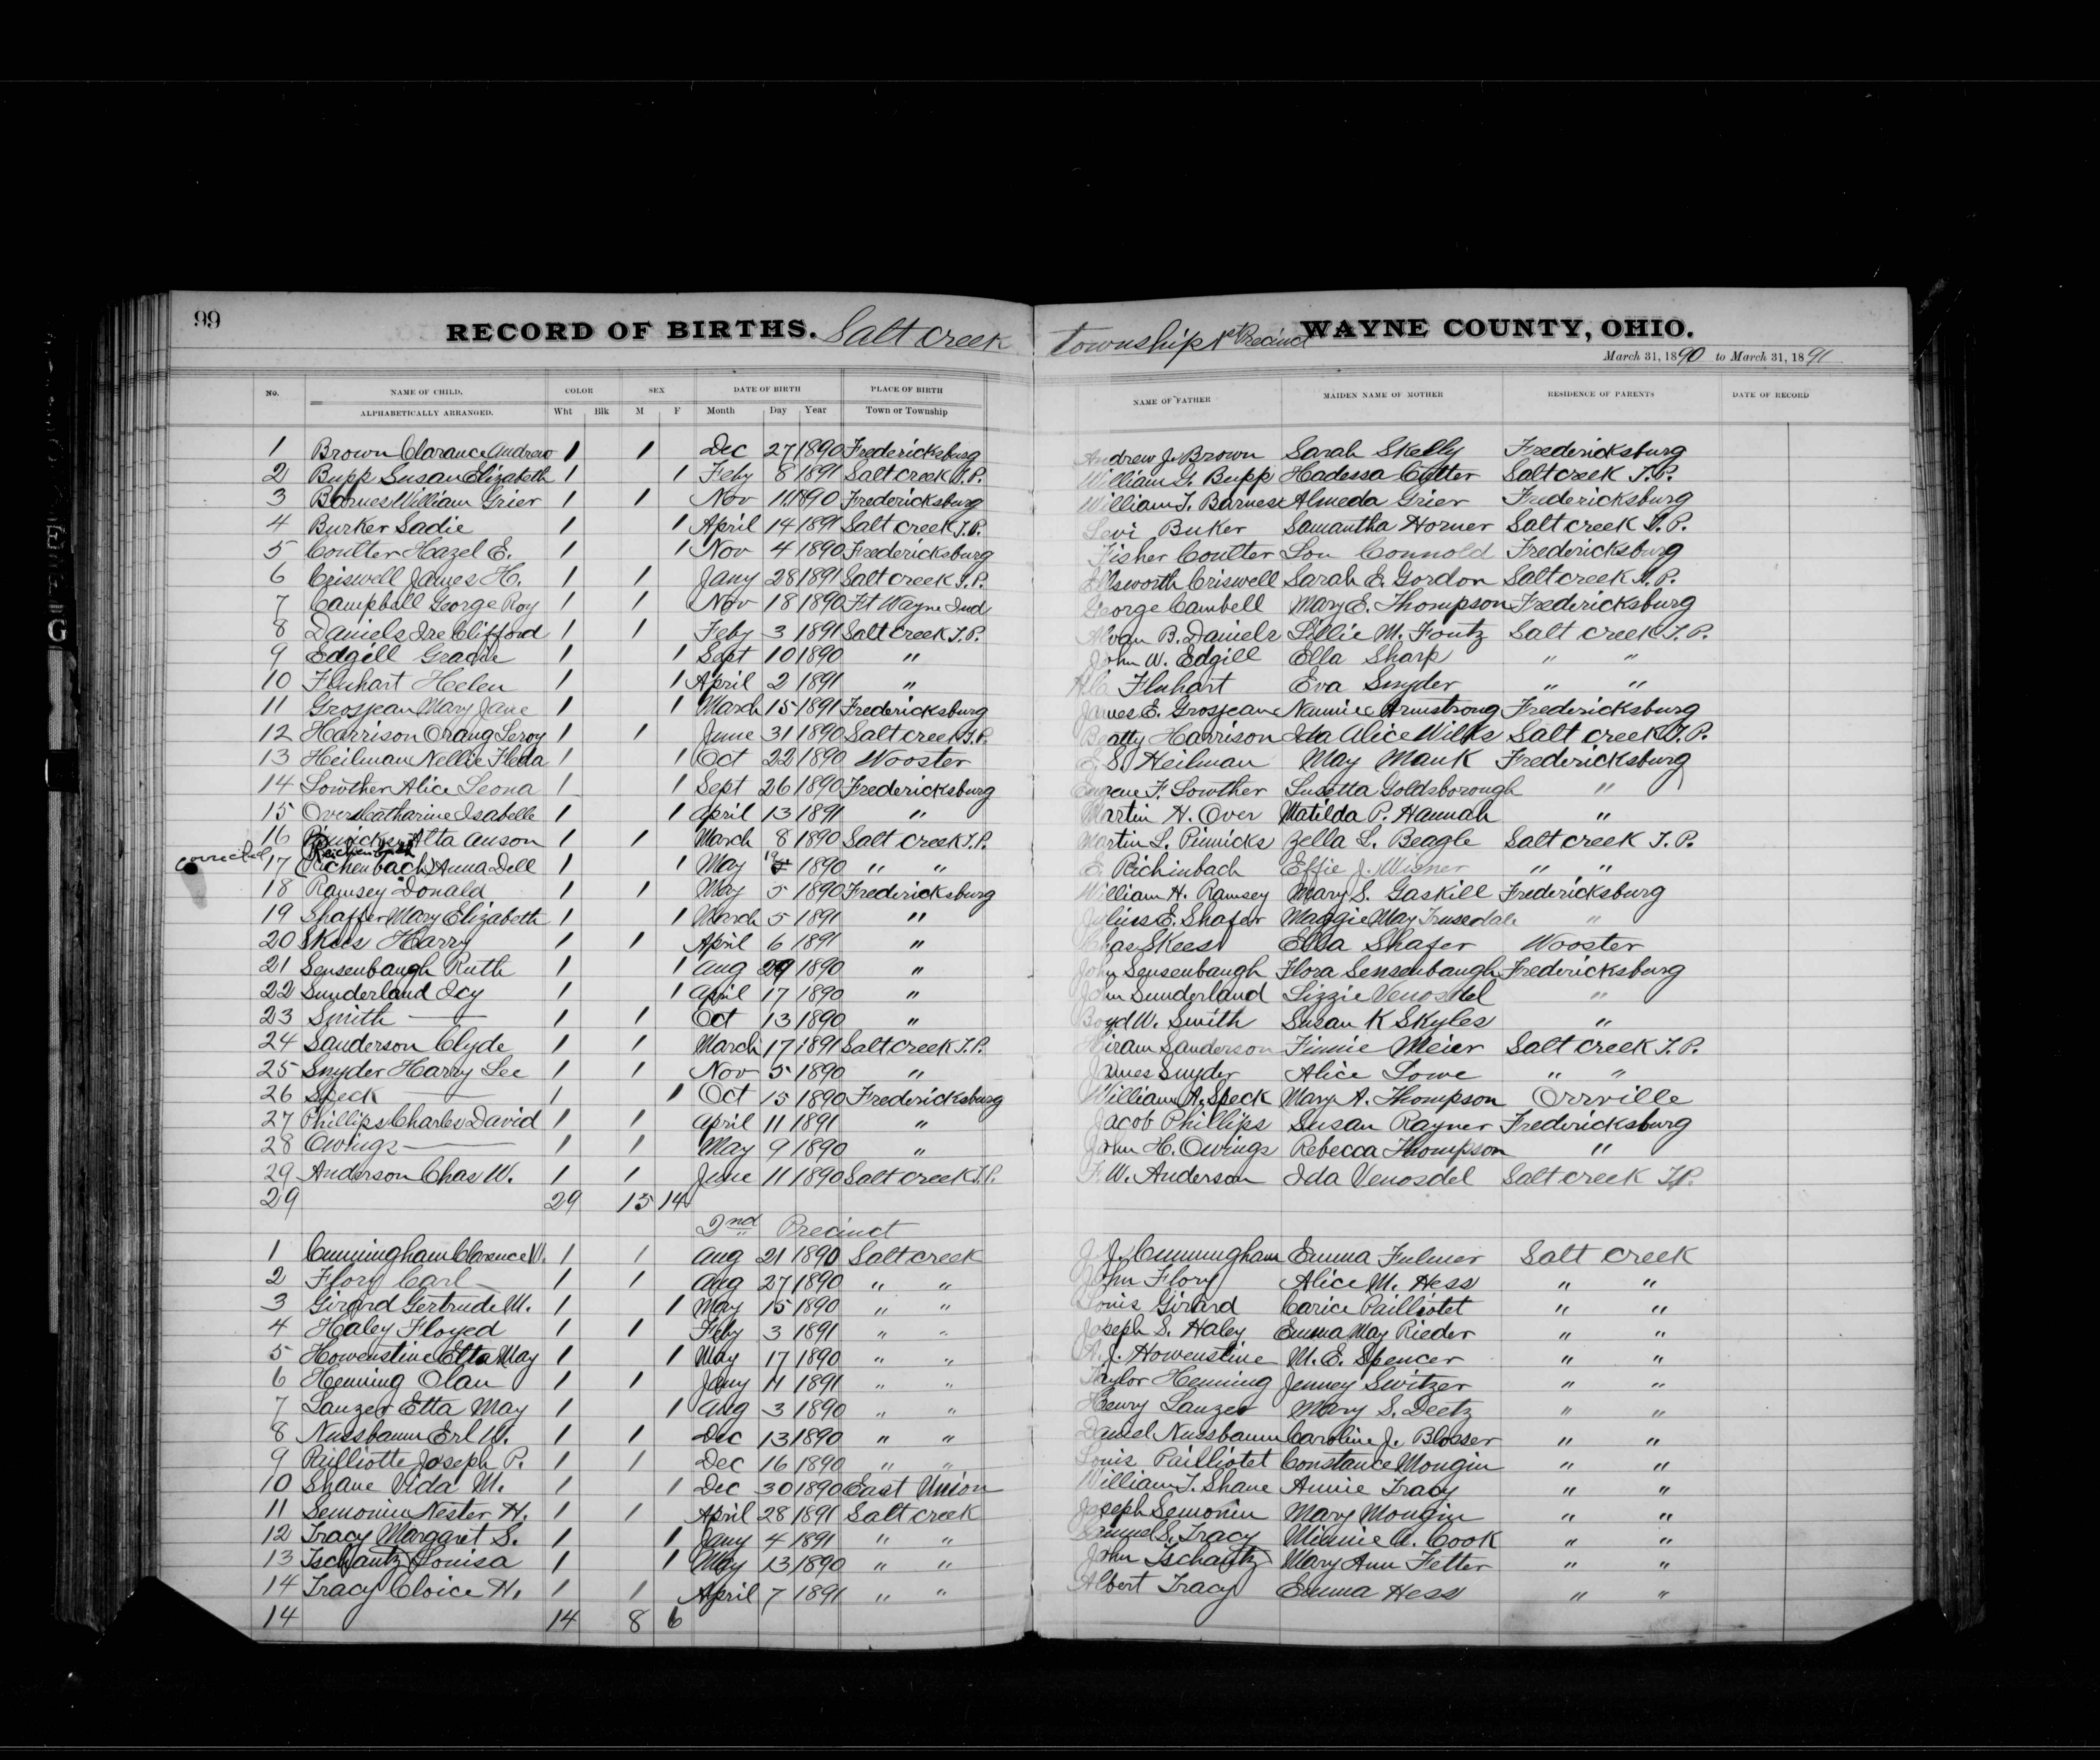 99
RECORD OF BIRTHS. Salt creek township 1st Precinct WAYNE COUNTY, OHIO.
March 31, 1890 to March 31, 1891
No. NAME OF CHILD. COLOR SEX DATE OF BIRTH PLACE OF BIRTH NAME OF FATHER MAIDEN NAME OF MOTHER RESIDENCE OF PARENTS DATE OF RECORD
ALPHABETICALLY ARRANGED. Wht Blk M F Month Day Year Town or Township
1 Brown Clarance Andrew 1 1 Dec 27 1890 Fredericksburg Andrew J. Brown Sarah Skelly Fredericksburg
2 Bupp Susan Elizabeth 1 1 Feby 8 1891 Salt creek T.P. William G. Bupp Hadessa Cutter Salt creek T.P.
3 Barnes William Grier 1 1 Nov 11 1890 Fredericksburg William T. Barnes Almeda Grier Fredericksburg
4 Burker Sadie 1 1 April 14 1891 Salt creek T.P. Levi Buker Samantha Horner Salt creek T.P.
5 Coulter Hazel E. 1 1 Nov 4 1890 Fredericksburg Fisher Coulter Lou Connold Fredericksburg
6 Criswell James H. 1 1 Jany 28 1891 Salt creek T.P. Ellsworth Criswell Sarah E. Gordon Salt creek T.P.
7 Campbell George Roy 1 1 Nov 18 1890 Ft Wayne Ind George Cambell Mary E. Thompson Fredericksburg
8 Daniels Ire Clifford 1 1 Feby 3 1891 Salt creek T.P. Alvan B. Daniels Lillie M. Foutz Salt creek T.P.
9 Edgill Gracie 1 1 Sept 10 1890 " John W. Edgill Ella Sharp " "
10 Fluhart Helen 1 1 April 2 1891 " Fluhart Eva Snyder " "
11 Grosjean Mary Jane 1 1 March 15 1891 Fredericksburg James E. Grosjean Nannie Armstrong Fredericksburg
12 Harrison Orang Leroy 1 1 June 31 1890 Salt creek T.P. Beatty Harrison Ida Alice Wilks Salt creek T.P.
13 Heilman Nellie Fleda 1 1 Oct 22 1890 Wooster E. S. Heilman May Mauk Fredericksburg
14 Lowther Alice Leona 1 1 Sept 26 1890 Fredericksburg Eugene F. Lowther Lusetta Goldsborough "
15 Over Catharine Isabelle 1 1 April 13 1891 " Martin H. Over Matilda P. Hannah "
16 Pinnicks Alta Anson 1 1 March 8 1890 Salt creek T.P. Martin L. Pinnicks Zella L. Beagle Salt creek T.P.
corrected Reichenbach
17 (Richenbach) Anna Dell 1 1 May 1890 " " E. Richinbach Effie J. Wisner " "
18 Ramsey Donald 1 1 May 5 1890 Fredericksburg William H. Ramsey Mary S. Gaskill Fredericksburg
19 Shaffer Mary Elizabeth 1 1 March 5 1891 " Julius E. Shafer Maggie May Trusedale "
20 Skees Harry 1 1 April 6 1891 " Chas Skees Ella Shafer Wooster
21 Sensenbaugh Ruth 1 1 Aug 29 1890 " John Sensenbaugh Flora Sensenbaugh Fredericksburg
22 Sunderland Icy 1 1 April 17 1890 " John Sunderland Lizzie Venosdel "
23 Smith — 1 1 Oct 13 1890 " Boyd W. Smith Susan K Skyles "
24 Sanderson Clyde 1 1 March 17 1891 Salt creek T.P. Hiram Sanderson Finnie Meier Salt creek T.P.
25 Snyder Harry Lee 1 1 Nov 5 1890 " James Snyder Alice Lowe " "
26 Speck — 1 1 Oct 15 1890 Fredericksburg William A. Speck Mary A. Thompson Orrville
27 Phillips Charles David 1 1 April 11 1891 " Jacob Phillips Susan Rayner Fredericksburg
28 Owings — 1 1 May 9 1890 " John H. Owings Rebecca Thompson "
29 Anderson Chas W. 1 1 June 11 1890 Salt creek T.P. F. W. Anderson Ida Venosdel Salt creek T.P.
29 29 15 14
2nd Precinct
1 Cunningham Clarence W. 1 1 Aug 21 1890 Salt creek J. J. Cunningham Emma Fulmer Salt creek
2 Flory Carl — 1 1 Aug 27 1890 " " John Flory Alice M. Hess " "
3 Girard Gertrude M. 1 1 May 15 1890 " " Louis Girard Carice Pailliotet " "
4 Haley Floyed 1 1 Feby 3 1891 " " Joseph S. Haley Emma May Rieder " "
5 Howenstine Etta May 1 1 May 17 1890 " " A. J. Howenstine M. E. Spencer " "
6 Henning Olan 1 1 Jany 11 1891 " " Taylor Henning Jenney Switzer " "
7 Lanzer Etta May 1 1 Aug 3 1890 " " Henry Lanzer Mary S. Deetz " "
8 Nussbaum Erl W. 1 1 Dec 13 1890 " " Daniel Nussbaum Caroline J. Blosser " "
9 Pailliotte Joseph P. 1 1 Dec 16 1890 " " Louis Pailliotet Constance Mougin " "
10 Shane Vida M. 1 1 Dec 30 1890 East Union William T. Shane Annie Tracy " "
11 Semonin Nester H. 1 1 April 28 1891 Salt creek Joseph Semonin Mary Mougin " "
12 Tracy Margaret S. 1 1 Jany 4 1891 " " Samuel S. Tracy Minnie A. Cook " "
13 Tschantz Louisa 1 1 May 13 1890 " " John Tschantz Mary Ann Fetter " "
14 Tracy Cloice H. 1 1 April 7 1891 " " Albert Tracy Emma Hess " "
14 14 8 6